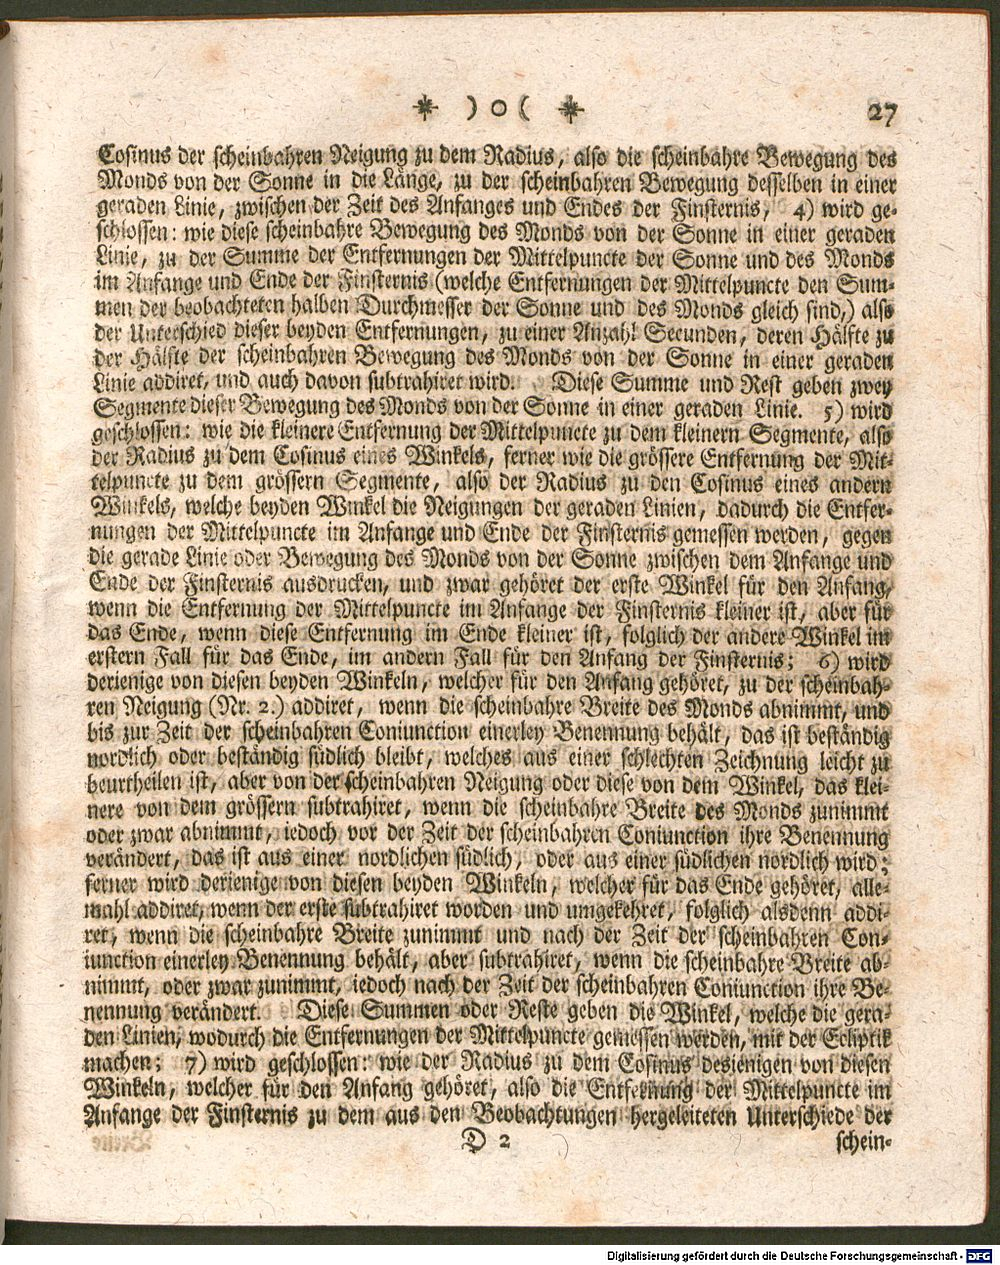 * ) o ( * 27
Cosinus der scheinbahren Neigung zu dem Radius, also die scheinbahre Bewegung des
Monds von der Sonne in die Länge, zu der scheinbahren Bewegung desselben in einer
geraden Linie, zwischen der Zeit des Anfanges und Endes der Finsternis, 4) wird ge-
schlossen: wie diese scheinbahre Bewegung des Monds von der Sonne in einer geraden
Linie, zu der Summe der Entfernungen der Mittelpuncte der Sonne und des Monds
im Anfange und Ende der Finsternis (welche Entfernungen der Mittelpuncte den Sum-
men der beobachteten halben Durchmesser der Sonne und des Monds gleich sind,) also
der Unterschied dieser beyden Entfernungen, zu einer Anzahl Secunden, deren Hälfte zu
der Hälfte der scheinbahren Bewegung des Monds von der Sonne in einer geraden
Linie addiret, und auch davon subtrahiret wird. Diese Summe und Rest geben zwey
Segmente dieser Bewegung des Monds von der Sonne in einer geraden Linie. 5) wird
geschlossen: wie die kleinere Entfernung der Mittelpuncte zu dem kleinern Segmente, also
der Radius zu dem Cosinus eines Winkels, ferner wie die grössere Entfernung der Mit-
telpuncte zu dem grössern Segmente, also der Radius zu den Cosinus eines andern
Winkels, welche beyden Winkel die Neigungen der geraden Linien, dadurch die Entfer-
nungen der Mittelpuncte im Anfange und Ende der Finsternis gemessen werden, gegen
die gerade Linie oder Bewegung des Monds von der Sonne zwischen dem Anfange und
Ende der Finsternis ausdrucken, und zwar gehöret der erste Winkel für den Anfang,
wenn die Entfernung der Mittelpuncte im Anfange der Finsternis kleiner ist, aber für
das Ende, wenn diese Entfernung im Ende kleiner ist, folglich der andere Winkel im
erstern Fall für das Ende, im andern Fall für den Anfang der Finsternis; 6) wird
derienige von diesen beyden Winkeln, welcher für den Anfang gehöret, zu der scheinbah-
ren Neigung (Nr. 2.) addiret, wenn die scheinbahre Breite des Monds abnimmt, und
bis zur Zeit der scheinbahren Coniunction einerley Benennung behält, das ist beständig
nordlich oder beständig südlich bleibt, welches aus einer schlechten Zeichnung leicht zu
beurtheilen ist, aber von der scheinbahren Neigung oder diese von dem Winkel, das klei-
nere von dem grössern subtrahiret, wenn die scheinbahre Breite des Monds zunimmt
oder zwar abnimmt, iedoch vor der Zeit der scheinbahren Coniunction ihre Benennung
verändert, das ist aus einer nordlichen südlich, oder aus einer südlichen nordlich wird;
ferner wird derienige von diesen beyden Winkeln, welcher für das Ende gehöret, alle-
mahl addiret, wenn der erste subtrahiret worden und umgekehret, folglich alsdenn addi-
ret, wenn die scheinbahre Breite zunimmt und nach der Zeit der scheinbahren Con-
iunction einerley Benennung behält, aber subtrahiret, wenn die scheinbahre Breite ab-
nimmt, oder zwar zunimmt, iedoch nach der Zeit der scheinbahren Coniunction ihre Be-
nennung verändert. Diese Summen oder Reste geben die Winkel, welche die gera-
den Linien, wodurch die Entfernungen der Mittelpuncte gemessen werden, mit der Ecliptik
machen; 7) wird geschlossen: wie der Radius zu dem Cosinus desienigen von diesen
Winkeln, welcher für den Anfang gehöret, also die Entfernung der Mittelpuncte im
Anfange der Finsternis zu dem aus den Beobachtungen hergeleiteten Unterschiede der
D 2 schein-
Digitalisierung gefördert durch die Deutsche Forschungsgemeinschaft - DFG